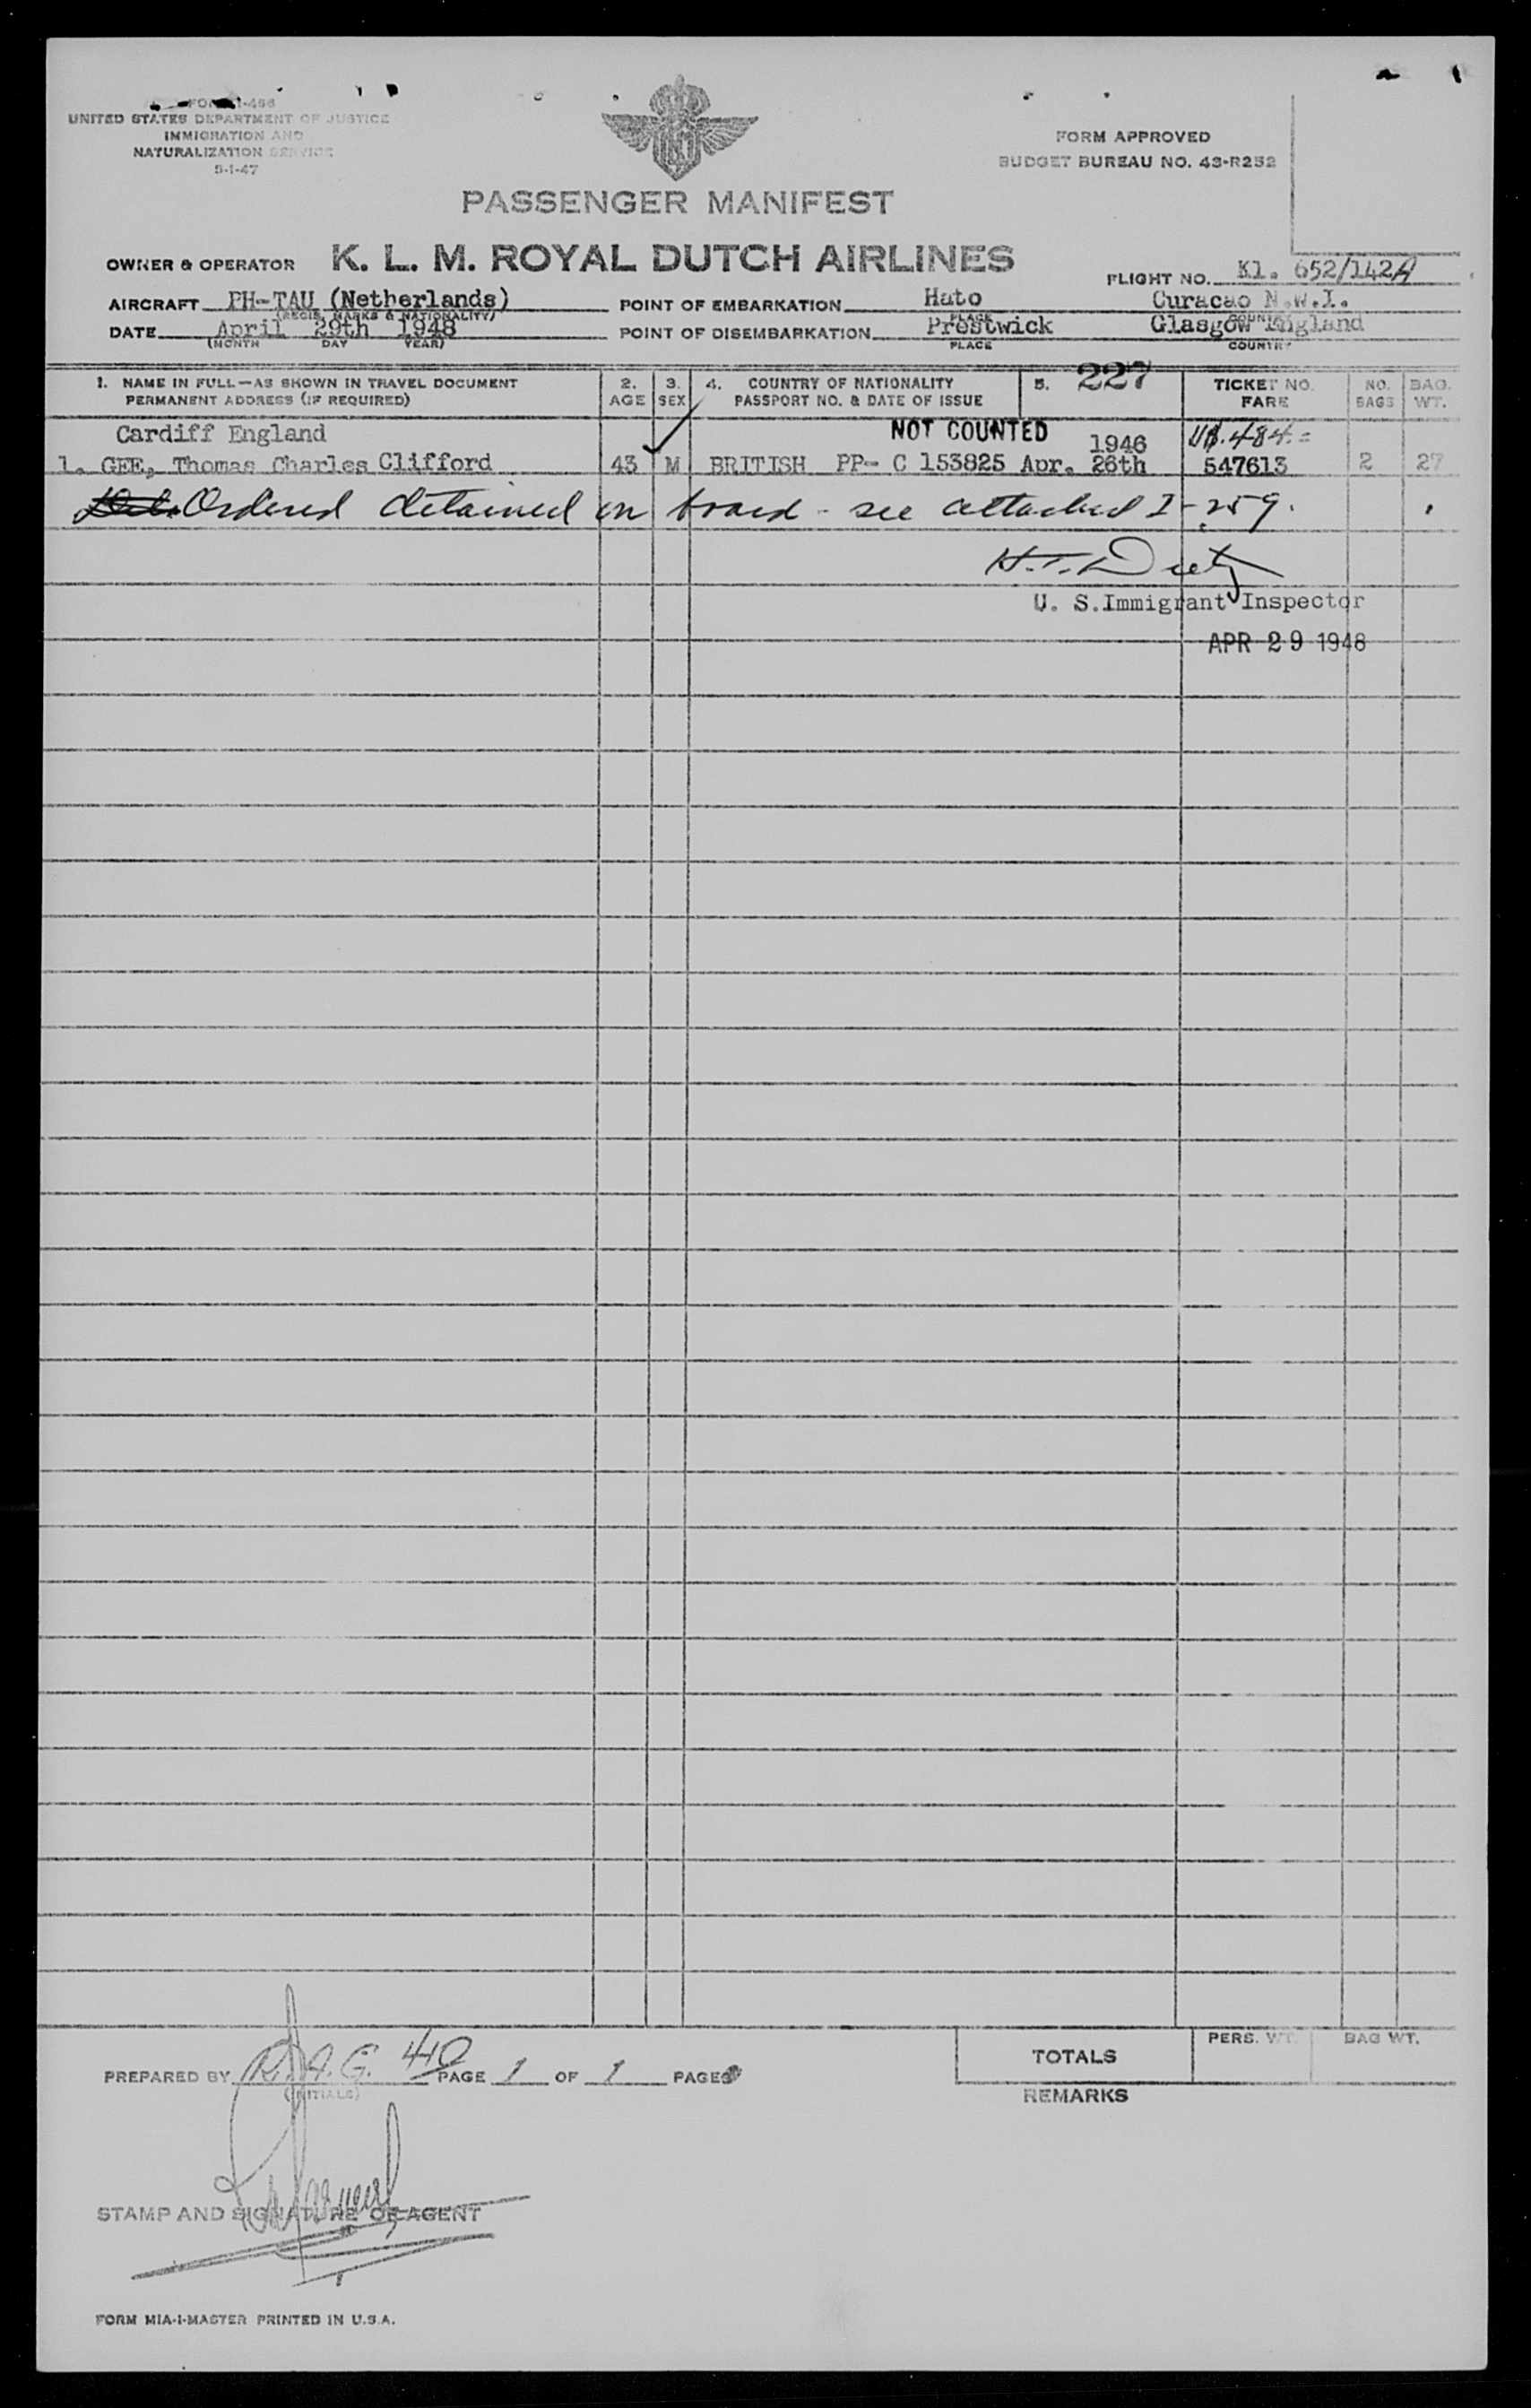 FORM I-466
UNITED STATES DEPARTMENT OF JUSTICE
IMMIGRATION AND
NATURALIZATION SERVICE
5-1-47
FORM APPROVED
BUDGET BUREAU NO. 43-R252
PASSENGER MANIFEST
OWNER & OPERATOR K. L. M. ROYAL DUTCH AIRLINES
FLIGHT NO. Kl. 652/142A
AIRCRAFT PH-TAU (Netherlands) POINT OF EMBARKATION Hato Curacao N.W.I.
(REGIS. MARKS & NATIONALITY) PLACE COUNTRY
DATE April 29th 1948 POINT OF DISEMBARKATION Prestwick Glasgow England
(MONTH DAY YEAR) PLACE COUNTRY
1. NAME IN FULL—AS SHOWN IN TRAVEL DOCUMENT 2. 3. 4. COUNTRY OF NATIONALITY 5. 227 TICKET NO. NO. BAG.
PERMANENT ADDRESS (IF REQUIRED) AGE SEX PASSPORT NO. & DATE OF ISSUE FARE BAGS WT.
Cardiff England NOT COUNTED 1946 U$.484.=
1. GEE, Thomas Charles Clifford 43 M BRITISH PP- C 153825 Apr. 26th 547613 2 27
Ordered detained on board - see attached I-259.
U. S. Immigrant Inspector
APR 29 1948
PREPARED BY R.A.G. 410 PAGE 1 OF 1 PAGES
(INITIALS)
TOTALS PERS. WT. BAG WT.
REMARKS
STAMP AND SIGNATURE OF AGENT
FORM MIA-1-MASTER PRINTED IN U.S.A.